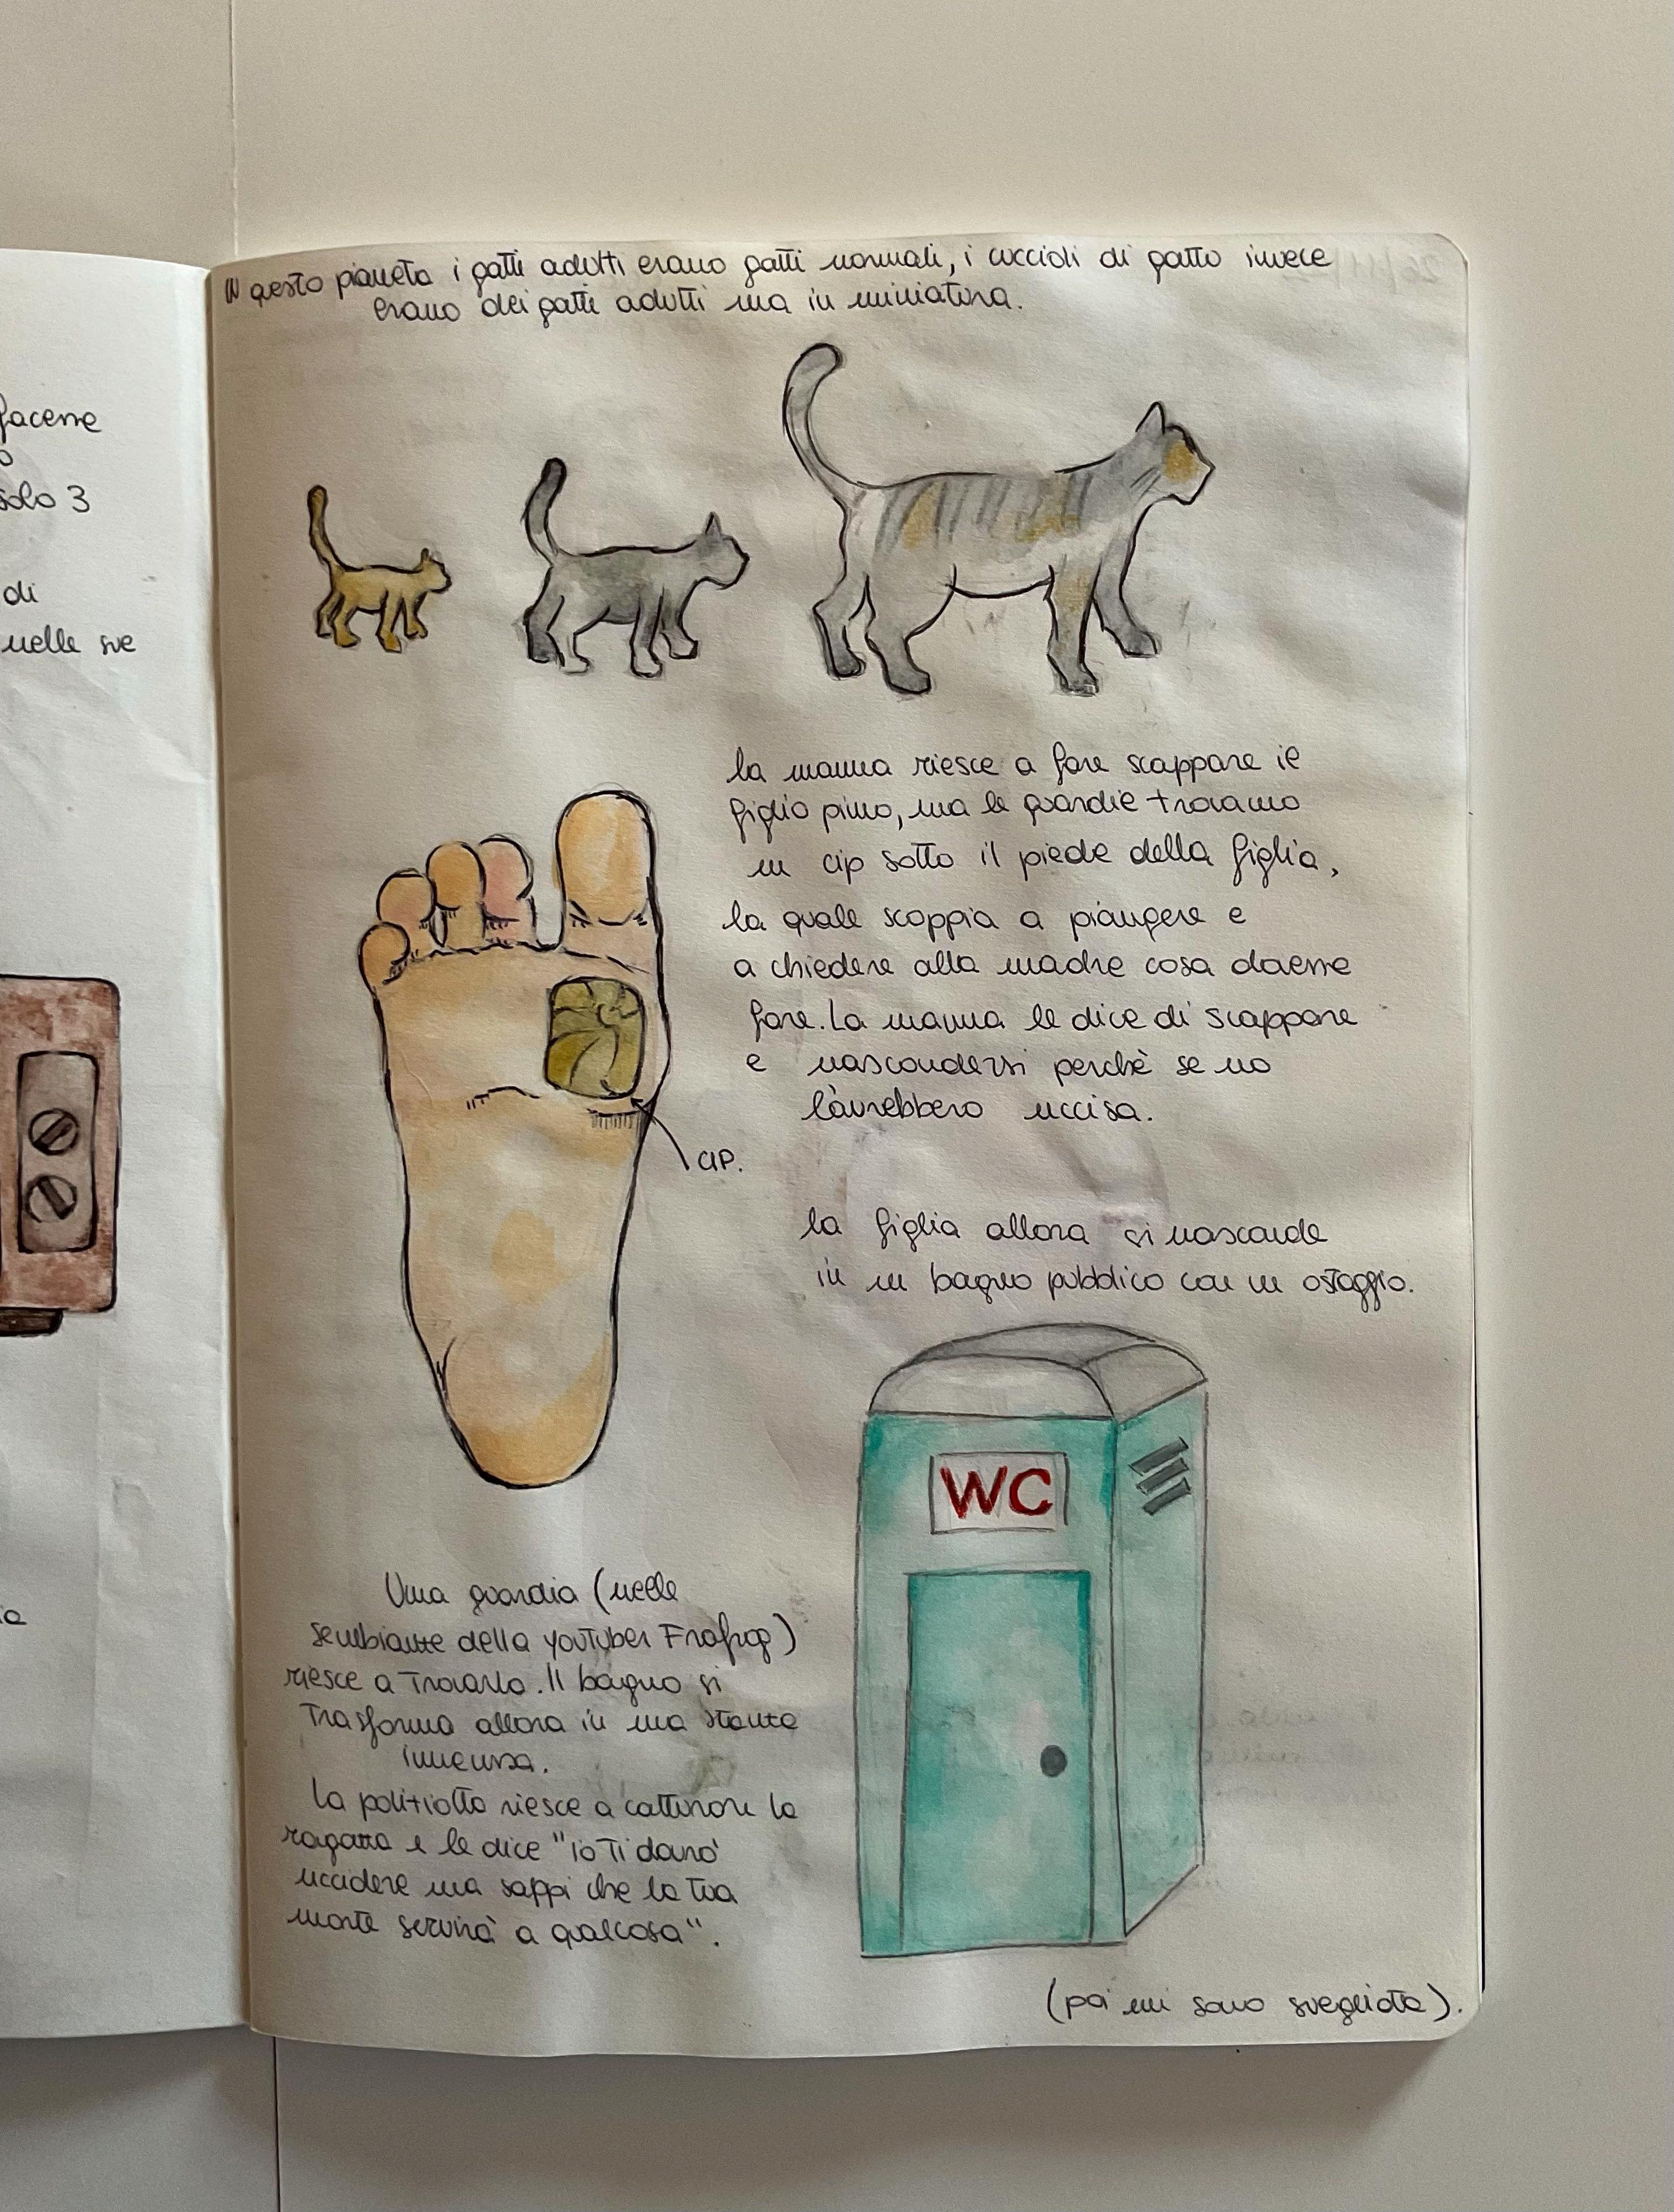 facesse
o
solo 3
di
nelle sue
ia
In questo pianeta i gatti adulti erano gatti normali, i cuccioli di gatto invece
erano dei gatti adulti ma in miniatura.
la mamma riesce a fare scappare il
figlio primo, ma le guardie trovano
un cip sotto il piede della figlia,
la quale scoppia a piangere e
a chiedere alla madre cosa dovesse
fare. La mamma le dice di scappare
e nascondersi perchè se no
l'avrebbero uccisa.
CIP.
la figlia allora si nasconde
in un bagno pubblico con un ostaggio.
WC
Una guardia (nelle
sembianze della youtuber Frafrog)
riesce a trovarla. Il bagno si
trasforma allora in una stanza
immensa.
La poliziotta riesce a catturare la
ragazza e le dice "Io ti dovrò
uccidere ma sappi che la tua
morte servirà a qualcosa".
(poi mi sono svegliata).